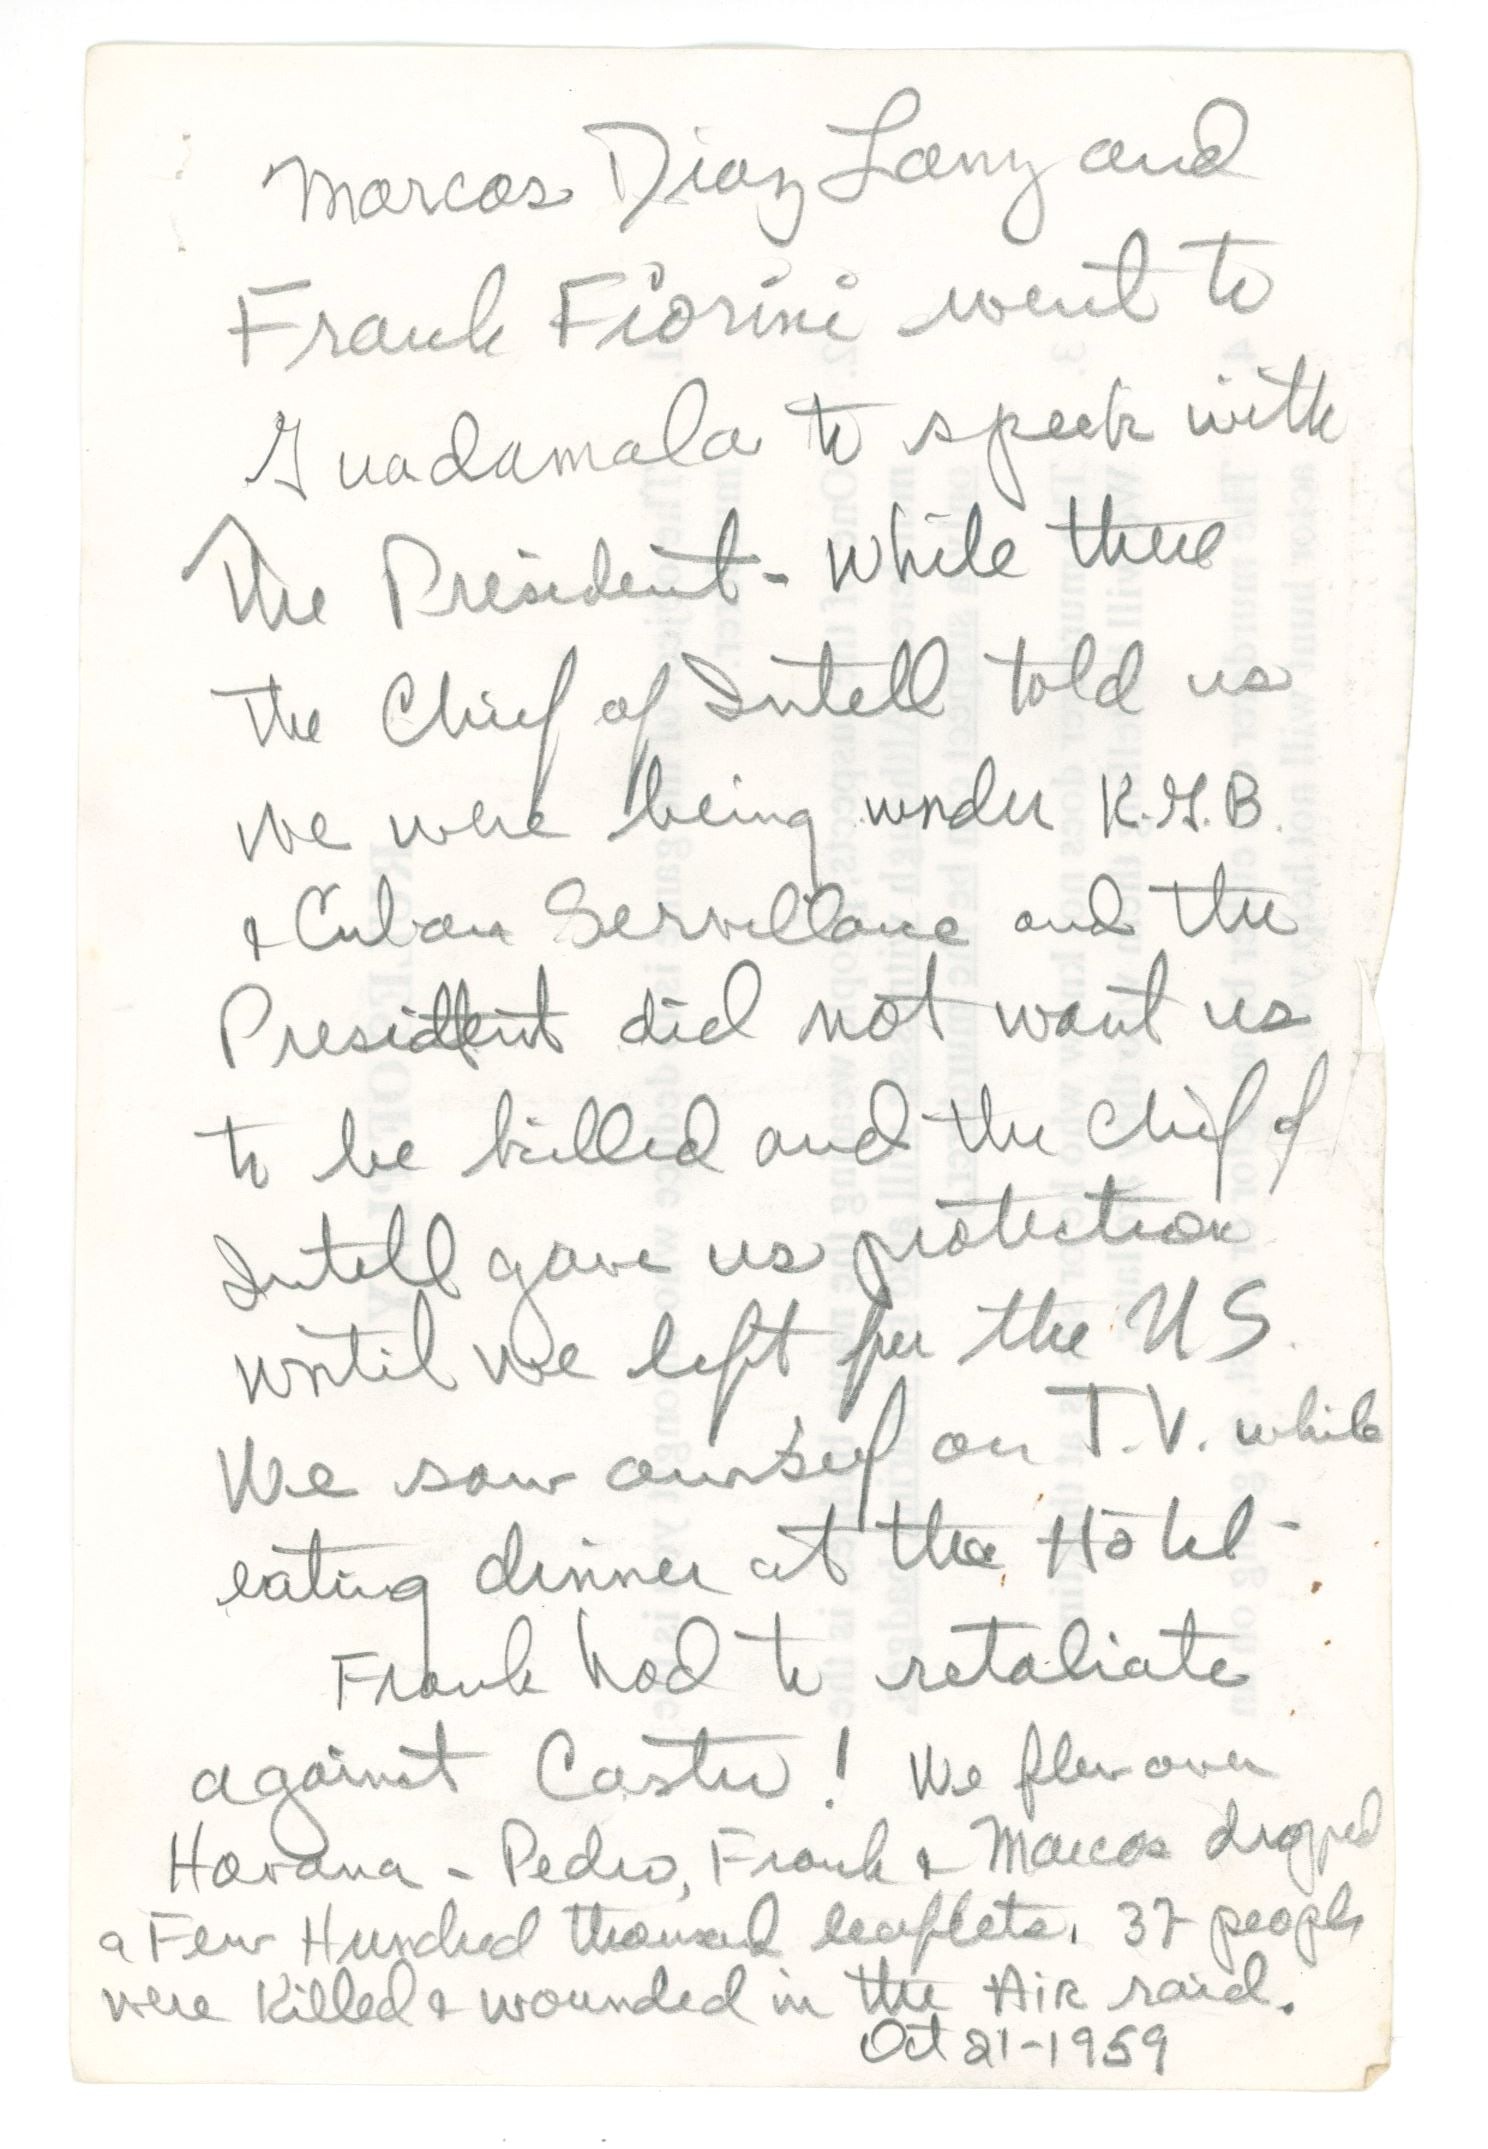 Marcos Diaz Lanz and
Frank Fiorini went to
Guadamala to speek with
The President - While there
the Chief of Intell told us
we were being under K.G.B.
& Cuban Servellance and the
President did not want us
to be killed and the chief of
Intell gave us protection
until we left for the US.
We saw ourself on T.V. while
eating dinner at the Hotel -
Frank had to retaliate
against Castro! We flew over
Havana - Pedro, Frank & Marcos droped
a Few Hundred thousand leaflets. 37 people
were Killed & wounded in the AiR raid.
Oct 21-1959